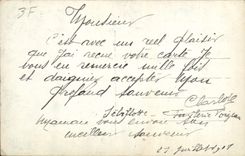 3F
Monsieur
C'est avec un réel plaisir
que j'ai reçu votre carte. Je
vous en remercie mille fois
et daignez accepter mon
profond souvenir
Charlotte
Maman vous envoie son
meilleur souvenir
21 Juillet 1901